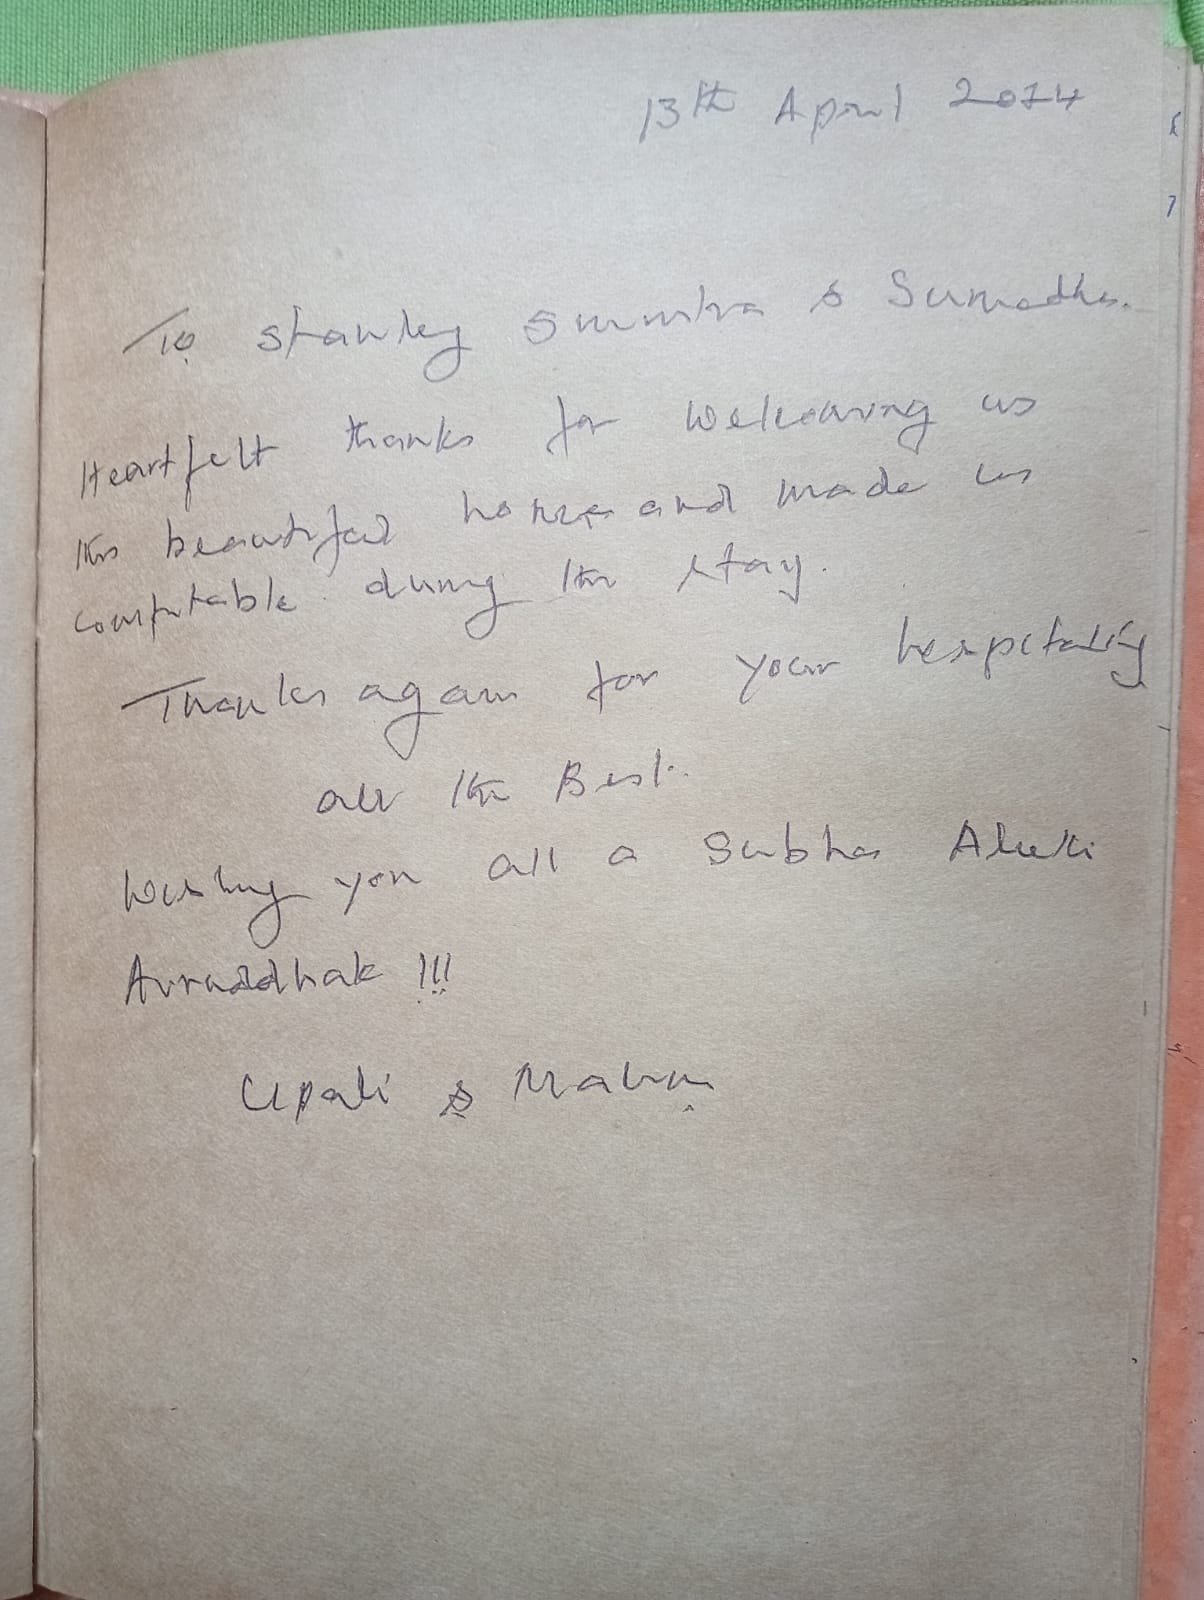 13th April 2014
To Stanley Sumitra & Sumedha.
Heartfelt thanks for welcoming us
this beautiful home and made us
comfortable during the stay.
Thanks again for your hospitality
all the Best.
Wishing you all a Subha Aluth
Avruddhak !!!
Upali & Malini